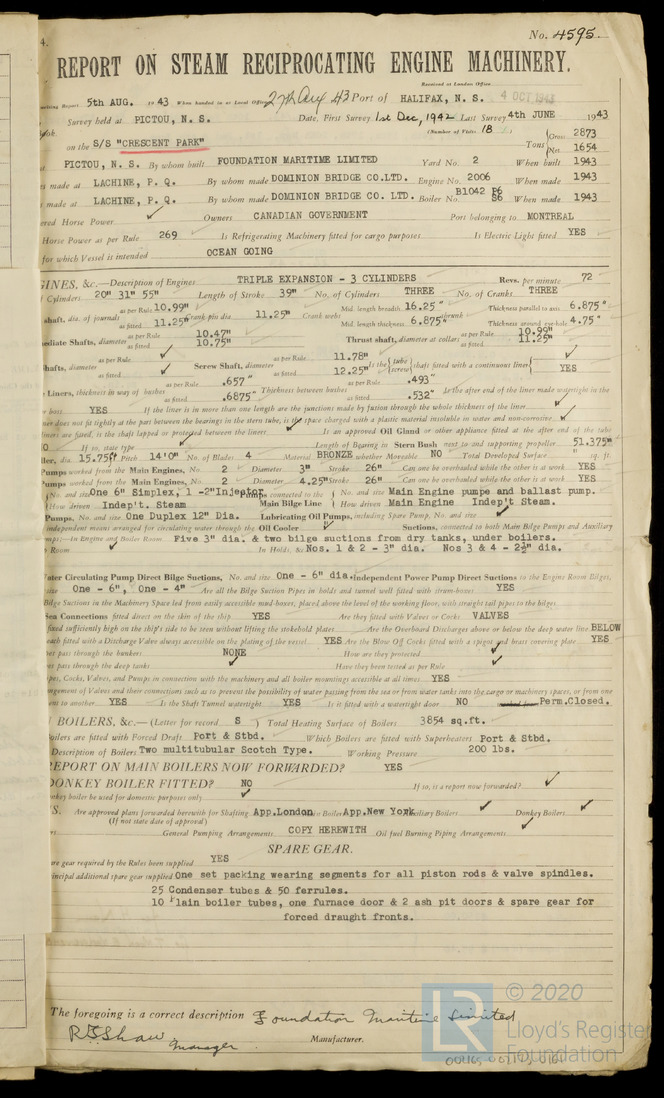 4. No. 4595.
REPORT ON STEAM RECIPROCATING ENGINE MACHINERY.
Received at London Office 4 OCT 1943
writing Report 5th AUG. 1943 When handed in at Local Office 27th Aug 43 Port of HALIFAX, N. S.
Survey held at PICTOU, N. S. Date, First Survey 1st Dec, 1942 Last Survey 4th JUNE 1943
(Number of Visits 18)
on the S/S "CRESCENT PARK" Tons {Gross 2873
Net 1654
PICTOU, N. S. By whom built FOUNDATION MARITIME LIMITED Yard No. 2 When built 1943
made at LACHINE, P. Q. By whom made DOMINION BRIDGE CO.LTD. Engine No. 2006 When made 1943
made at LACHINE, P. Q. By whom made DOMINION BRIDGE CO. LTD. Boiler No. B1042 P6 S6 When made 1943
Horse Power Owners CANADIAN GOVERNMENT Port belonging to MONTREAL
Horse Power as per Rule 269 Is Refrigerating Machinery fitted for cargo purposes Is Electric Light fitted YES
for which Vessel is intended OCEAN GOING
GINES, &c.—Description of Engines TRIPLE EXPANSION - 3 CYLINDERS Revs. per minute 72
Cylinders 20" 31" 55" Length of Stroke 39" No. of Cylinders THREE No. of Cranks THREE
shaft, dia. of journals as per Rule 10.99" as fitted 11.25" Crank pin dia 11.25" Crank webs Mid. length breadth 16.25" Mid. length thickness 6.875" shrunk Thickness parallel to axis 6.875" Thickness around eye-hole 4.75"
mediate Shafts, diameter as per Rule 10.47" as fitted 10.75" Thrust shaft, diameter at collars as per Rule 10.99" as fitted 11.25"
hafts, diameter as per Rule as fitted Screw Shaft, diameter as per Rule 11.78" as fitted 12.25" Is the {tube screw} shaft fitted with a continuous liner YES
Liners, thickness in way of bushes as per Rule .657" as fitted .6875" Thickness between bushes as per Rule .493" as fitted .532" Is the after end of the liner made watertight in the
boss YES If the liner is in more than one length are the junctions made by fusion through the whole thickness of the liner
ner does not fit tightly at the part between the bearings in the stern tube, is the space charged with a plastic material insoluble in water and non-corrosive
liners are fitted, is the shaft lapped or protected between the liners Is an approved Oil Gland or other appliance fitted at the after end of the tube
NO If so, state type Length of Bearing in Stern Bush next to and supporting propeller 51.375"
ller, dia. 15.75ft Pitch 14'0" No. of Blades 4 Material BRONZE whether Moveable NO Total Developed Surface sq. ft.
Pumps worked from the Main Engines, No. 2 Diameter 3" Stroke 26" Can one be overhauled while the other is at work YES
Pumps worked from the Main Engines, No. 2 Diameter 4.25" Stroke 26" Can one be overhauled while the other is at work YES
No. and size One 6" Simplex, 1 -2"Injector Pumps connected to the Main Bilge Line {No. and size Main Engine pumpe and ballast pump.
How driven Indep't. Steam How driven Main Engine Indep't Steam.
Pumps, No. and size One Duplex 12" Dia. Lubricating Oil Pumps, including Spare Pump, No. and size
independent means arranged for circulating water through the Oil Cooler Suctions, connected to both Main Bilge Pumps and Auxiliary
mps:—In Engine and Boiler Room Five 3" dia. & two bilge suctions from dry tanks, under boilers.
Room In Holds, &c Nos. 1 & 2 - 3" dia. Nos 3 & 4 - 2½" dia.
ater Circulating Pump Direct Bilge Suctions, No. and size One - 6" dia. Independent Power Pump Direct Suctions to the Engine Room Bilges,
size One - 6", One - 4" Are all the Bilge Suction Pipes in holds and tunnel well fitted with strum-boxes YES
Bilge Suctions in the Machinery Space led from easily accessible mud-boxes, placed above the level of the working floor, with straight tail pipes to the bilges
Sea Connections fitted direct on the skin of the ship YES Are they fitted with Valves or Cocks VALVES
fixed sufficiently high on the ship's side to be seen without lifting the stokehold plates Are the Overboard Discharges above or below the deep water line BELOW
each fitted with a Discharge Valve always accessible on the plating of the vessel YES Are the Blow Off Cocks fitted with a spigot and brass covering plate YES
pass through the bunkers NONE How are they protected
pass through the deep tanks Have they been tested as per Rule
pes, Cocks, Valves, and Pumps in connection with the machinery and all boiler mountings accessible at all times YES
angement of Valves and their connections such as to prevent the possibility of water passing from the sea or from water tanks into the cargo or machinery spaces, or from one
nt to another YES Is the Shaft Tunnel watertight YES Is it fitted with a watertight door NO Perm.Closed.
BOILERS, &c.—(Letter for record S) Total Heating Surface of Boilers 3854 sq.ft.
oilers are fitted with Forced Draft Port & Stbd. Which Boilers are fitted with Superheaters Port & Stbd.
Description of Boilers Two multitubular Scotch Type. Working Pressure 200 lbs.
REPORT ON MAIN BOILERS NOW FORWARDED? YES
DONKEY BOILER FITTED? NO If so, is a report now forwarded?
onkey boiler be used for domestic purposes only
S. Are approved plans forwarded herewith for Shafting App.London Boilers App.New York Auxiliary Boilers Donkey Boilers
(If not state date of approval)
General Pumping Arrangements COPY HEREWITH Oil fuel Burning Piping Arrangements
SPARE GEAR.
are gear required by the Rules been supplied YES
incipal additional spare gear supplied One set packing wearing segments for all piston rods & valve spindles.
25 Condenser tubes & 50 ferrules.
10 Plain boiler tubes, one furnace door & 2 ash pit doors & spare gear for
forced draught fronts.
The foregoing is a correct description Foundation Maritime Limited
R E Shaw Manager Manufacturer.
© 2020
LR Lloyd's Register
Foundation